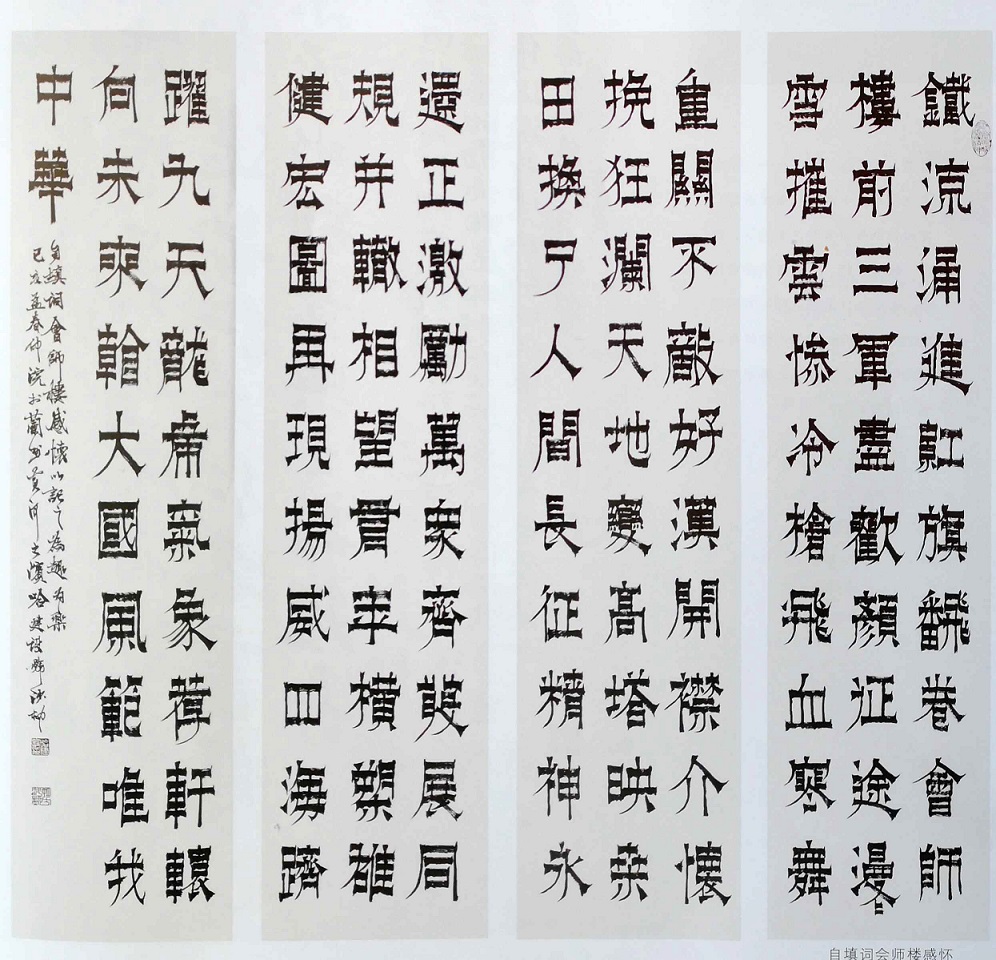 鐵流涌進紅旗翻卷會師
樓前三軍盡歡顏征途漫〻
雪摧雲慘冷槍飛血寒舞
重關不敵好漢開襟介懷
挽狂瀾天地變高塔映桑
田換了人間長征精神永
還正激勵萬衆齊發展同
規并轍相望貫年橫槊雄
健宏圖再現揚威四海躋
躍九天龍虎氣象偉軒轅
向未來翰大國風範唯我
中華
自填詞會師樓感懷以記之為趣有樂
己丑孟春仲浣於蘭州黃河之濱哈建設
自填词会师楼感怀